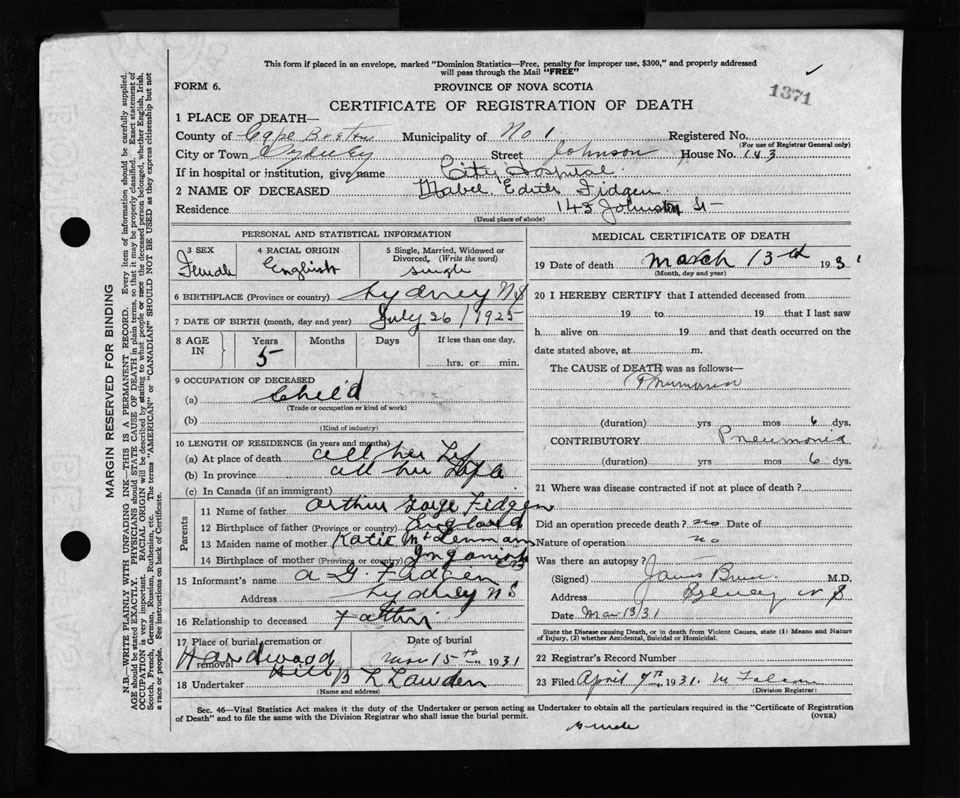 This form if placed in an envelope, marked "Dominion Statistics—Free, penalty for improper use, $300," and properly addressed
will pass through the Mail "FREE"
FORM 6.
PROVINCE OF NOVA SCOTIA
1371
CERTIFICATE OF REGISTRATION OF DEATH
1 PLACE OF DEATH—
County of Cape Breton Municipality of No 1 Registered No.
(For use of Registrar General only)
City or Town Sydney Street Johnson House No. 143
If in hospital or institution, give name City Hospital
2 NAME OF DECEASED Mabel Edith Fidgen
Residence 143 Johnston St
(Usual place of abode)
PERSONAL AND STATISTICAL INFORMATION
3 SEX Female
4 RACIAL ORIGIN English
5 Single, Married, Widowed or Divorced, (Write the word) single
6 BIRTHPLACE (Province or country) Sydney NS
7 DATE OF BIRTH (month, day and year) July 26/1925
8 AGE IN Years 5 Months Days If less than one day, hrs. or min.
9 OCCUPATION OF DECEASED
(a) Child
(Trade or occupation or kind of work)
(b)
(Kind of industry)
10 LENGTH OF RESIDENCE (in years and months)
(a) At place of death all her Life
(b) In province all her Life
(c) In Canada (if an immigrant)
Parents
11 Name of father Arthur George Fidgen
12 Birthplace of father (Province or country) England
13 Maiden name of mother Katie McLennan
14 Birthplace of mother (Province or country) Inganish CB
15 Informant's name A G Fidgen
Address Sydney NS
16 Relationship to deceased Father
17 Place of burial, cremation or removal Hardwood Hill
Date of burial Mar 15th 1931
18 Undertaker B L Lawden
(Name and address)
MEDICAL CERTIFICATE OF DEATH
19 Date of death March 13th 1931
(Month, day and year)
20 I HEREBY CERTIFY that I attended deceased from
19 to 19 that I last saw
h alive on 19 and that death occurred on
date stated above, at m.
The CAUSE of DEATH was as follows:—
(duration) yrs mos 6 dys.
CONTRIBUTORY Pneumonia
(duration) yrs mos 6 dys.
21 Where was disease contracted if not at place of death?
Did an operation precede death? no Date of
Nature of operation no
Was there an autopsy?
(Signed) James Bruce M.D.
Address Sydney N S
Date Mar 13/31
State the Disease causing Death, or in death from Violent Causes, state (1) Means and Nature
of Injury, (2) whether Accidental, Suicidal or Homicidal.
22 Registrar's Record Number
23 Filed April 7th 1931
(Division Registrar)
Sec. 46—Vital Statistics Act makes it the duty of the Undertaker or person acting as Undertaker to obtain all the particulars required in the "Certificate of Registration
of Death" and to file the same with the Division Registrar who shall issue the burial permit.
(OVER)
MARGIN RESERVED FOR BINDING
N.B.—WRITE PLAINLY WITH UNFADING INK—THIS IS A PERMANENT RECORD. Every item of information should be carefully supplied.
AGE should be stated EXACTLY. PHYSICIANS should STATE CAUSE OF DEATH in plain terms, so that it may be properly classified. Exact statement of
OCCUPATION is very important. RACIAL ORIGIN will be described by stating to what people or race the deceased person belonged, whether English, Irish,
Scotch, French, German, Russian, Ruthenian, etc. The terms "AMERICAN" or "CANADIAN" SHOULD NOT BE USED as they express citizenship but not
a race or people. See instructions on back of Certificate.